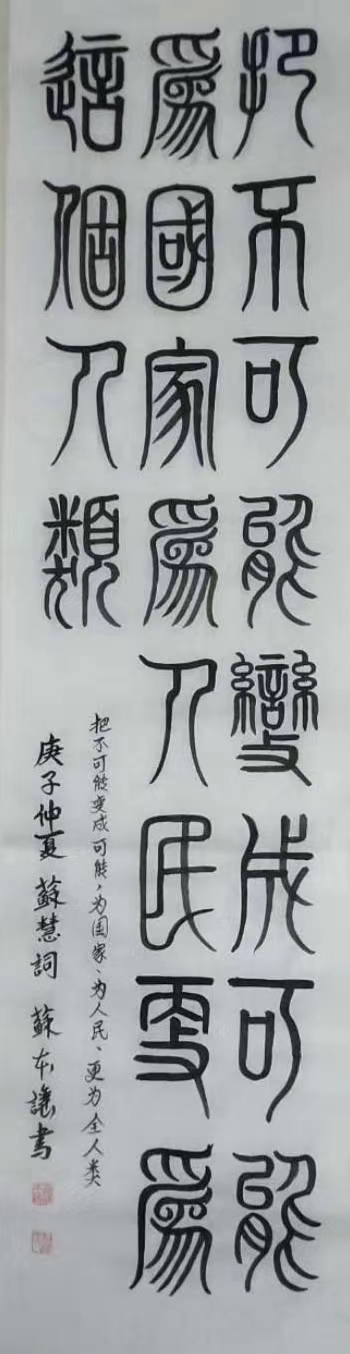 把不可能變成可能
爲國家爲人民更爲
這個人類
把不可能变成可能,为国家、为人民、更为全人类
庚子仲夏 蘇慧詞 蘇本書